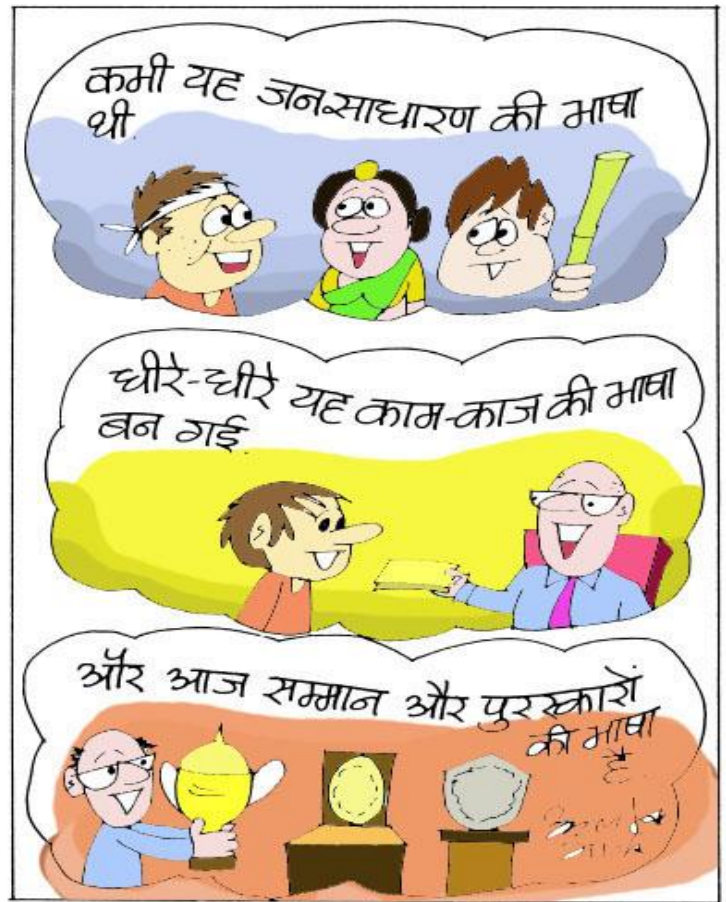 कभी यह जनसाधारण की भाषा
थी.
धीरे-धीरे यह काम-काज की भाषा
बन गई.
और आज सम्मान और पुरस्कारों
की भाषा
है.